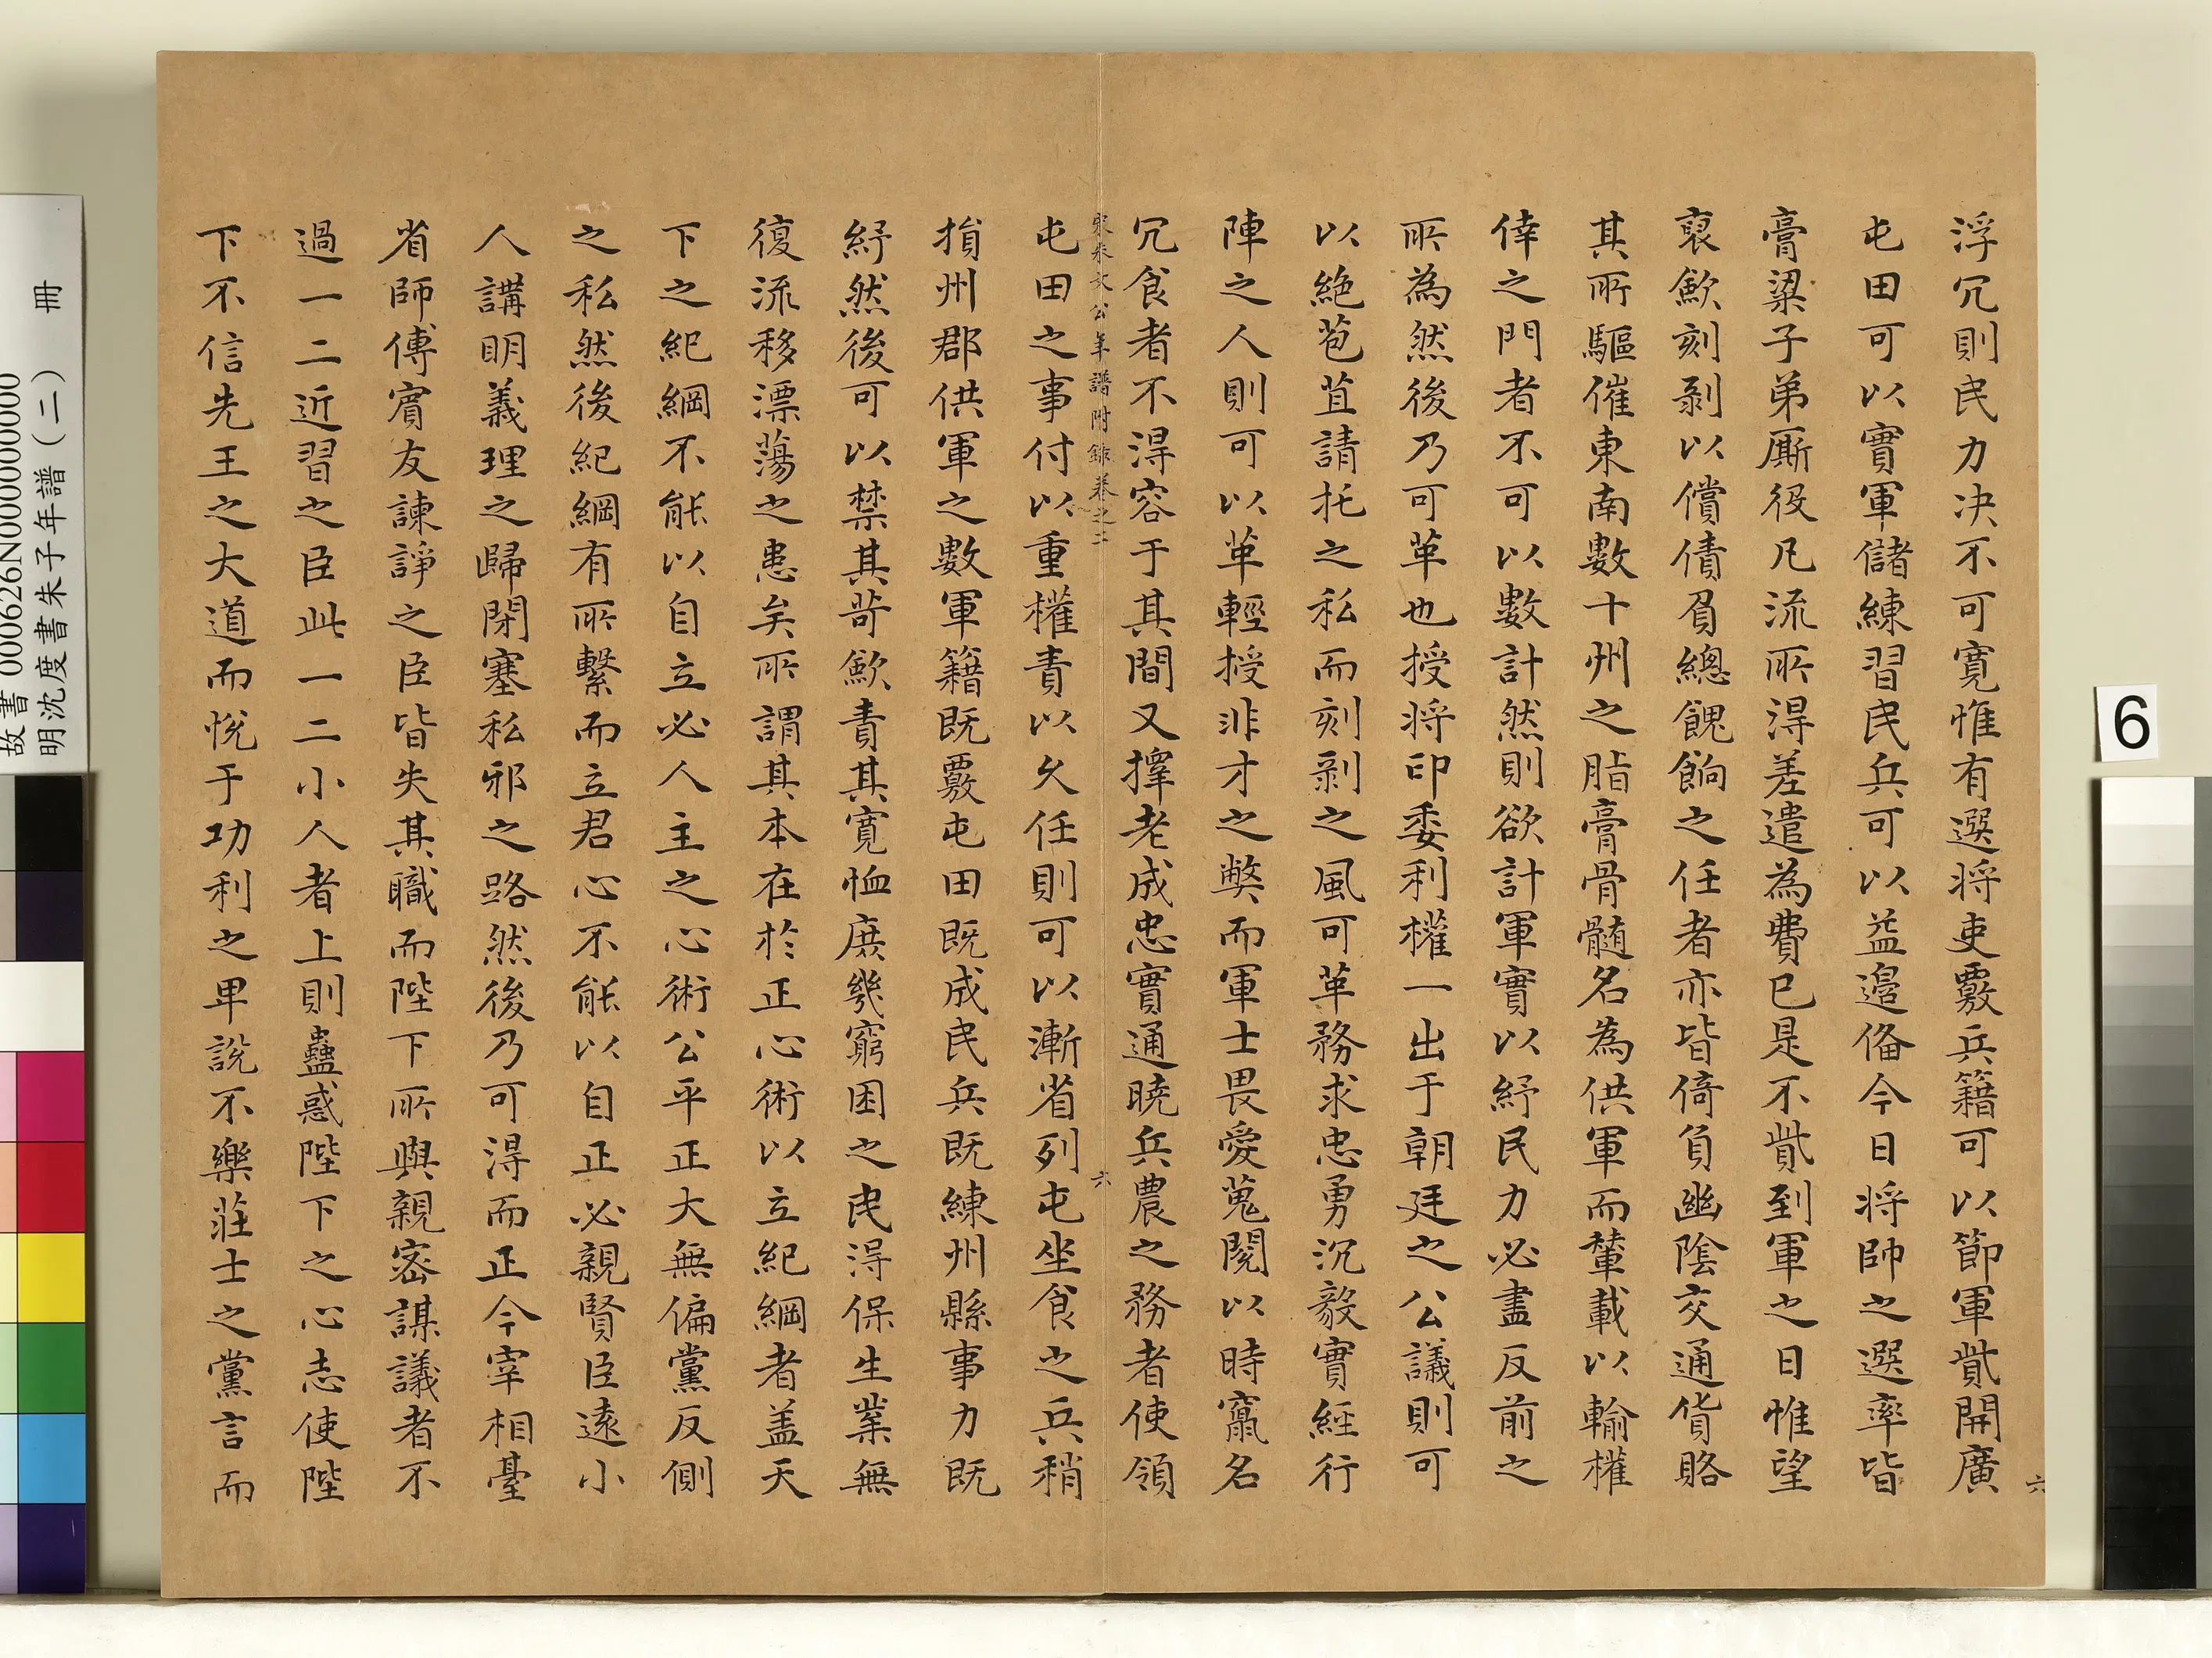 浮冗則民力决不可寛惟有選将吏覈兵籍可以節軍貲開廣
屯田可以實軍儲練習民兵可以益邉俻今日将帥之選率皆
膏粱子弟厮役凡流所得差遣為費已是不貲到軍之日惟望
裒歛刻剥以償債負總餽餉之任者亦皆倚負幽隂交通貨賂
其所驅催東南數十州之脂膏骨髓名為供軍而輦載以輸權
倖之門者不可以數計然則欲計軍實以紓民力必盡反前之
所為然後乃可革也授将印委利權一出于朝廷之公議則可
以絶苞苴請托之私而刻剥之風可革務求忠勇沉毅實經行
陣之人則可以革輕授非才之獘而軍士畏愛蒐閱以時竄名
冗食者不得容于其間又擇老成忠實通曉兵農之務者使領
宋朱文公年譜附錄卷之二 六
屯田之事付以重權責以久任則可以漸省列屯坐食之兵稍
損州郡供軍之數軍籍既覈屯田既成民兵既練州縣事力既
紓然後可以禁其苛歛責其寛恤庶幾窮困之民得保生業無
復流移漂蕩之患矣所謂其本在於正心術以立紀綱者盖天
下之紀綱不能以自立必人主之心術公平正大無偏黨反側
之私然後紀綱有所繫而立君心不能以自正必親賢臣遠小
人講明義理之歸閉塞私邪之路然後乃可得而正今宰相臺
省師傅賓友諫諍之臣皆失其職而陛下所與親密謀議者不
過一二近習之臣此一二小人者上則蠱惑陛下之心志使陛
下不信先王之大道而悅于功利之卑說不樂莊士之黨言而
六
故書000626N000000000
明沈度書朱子年譜（二） 冊
6